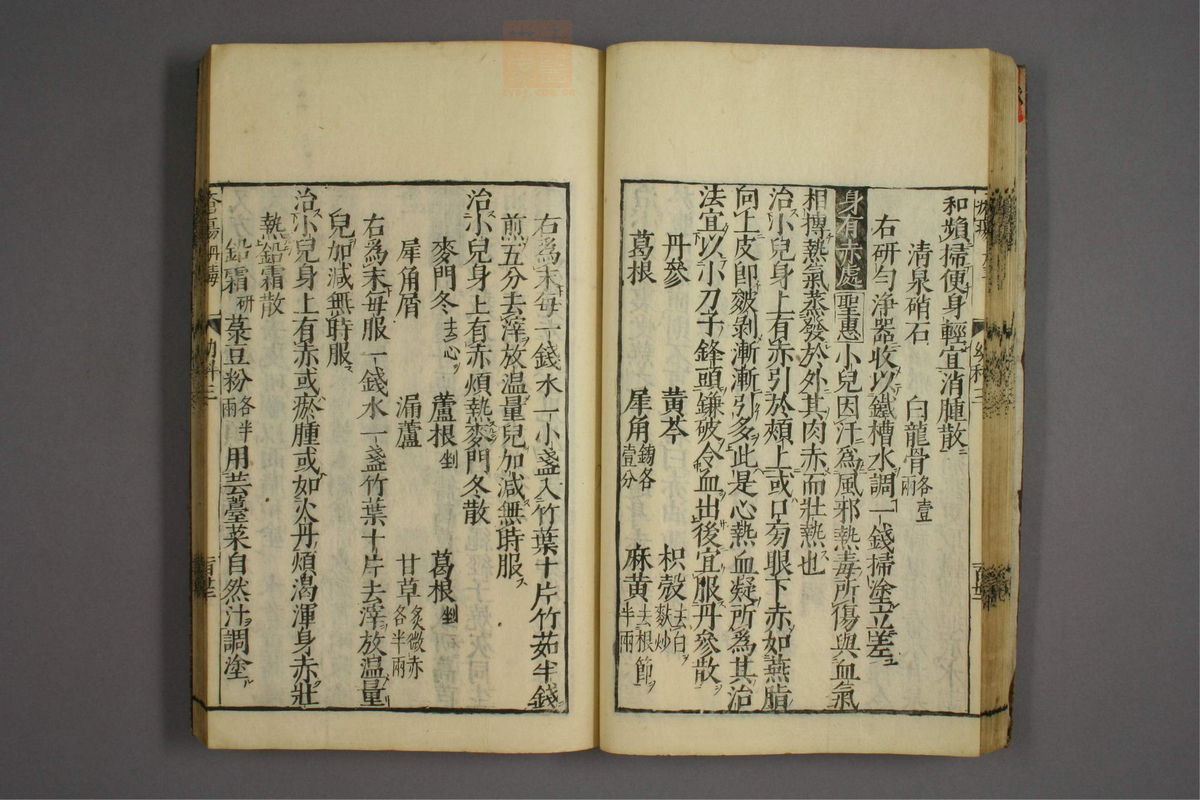 和蘋掃便身輕宜消腫散
清泉硝石 白龍骨各壹兩
右研勻淨器收以鐵槽水調一錢掃塗立差
身有赤處聖惠小兒因汗爲風邪熱毒所傷與血氣
相摶熱氣蒸發於外其肉赤而壯熱也
治小兒身上有赤引於頰上或口旁眼下赤如燕脂
向上皮即皴剥漸漸引多此是心熱血凝所爲其治
法宜以小刀子鋒頭鎌破令血出後宜服丹參散
丹參 黄芩 枳殼去白麩炒
葛根 犀角鎊各壹分 麻黄去根節半兩
右爲末每一錢水一小盞入竹葉十片竹茹半錢
煎五分去滓放温量兒加減無時服
治小兒身上有赤煩熱麥門冬散
麥門冬去心 蘆根剉 葛根剉
犀角屑 漏蘆 甘草炙微赤各半兩
右爲末每服一錢水一盞竹葉十片去滓放温量
兒加減無時服
治小兒身上有赤或瘀腫或如火丹煩渴渾身赤壯
熱鉛霜散
鉛霜研 菉豆粉各半兩 用芸薹菜自然汁調塗